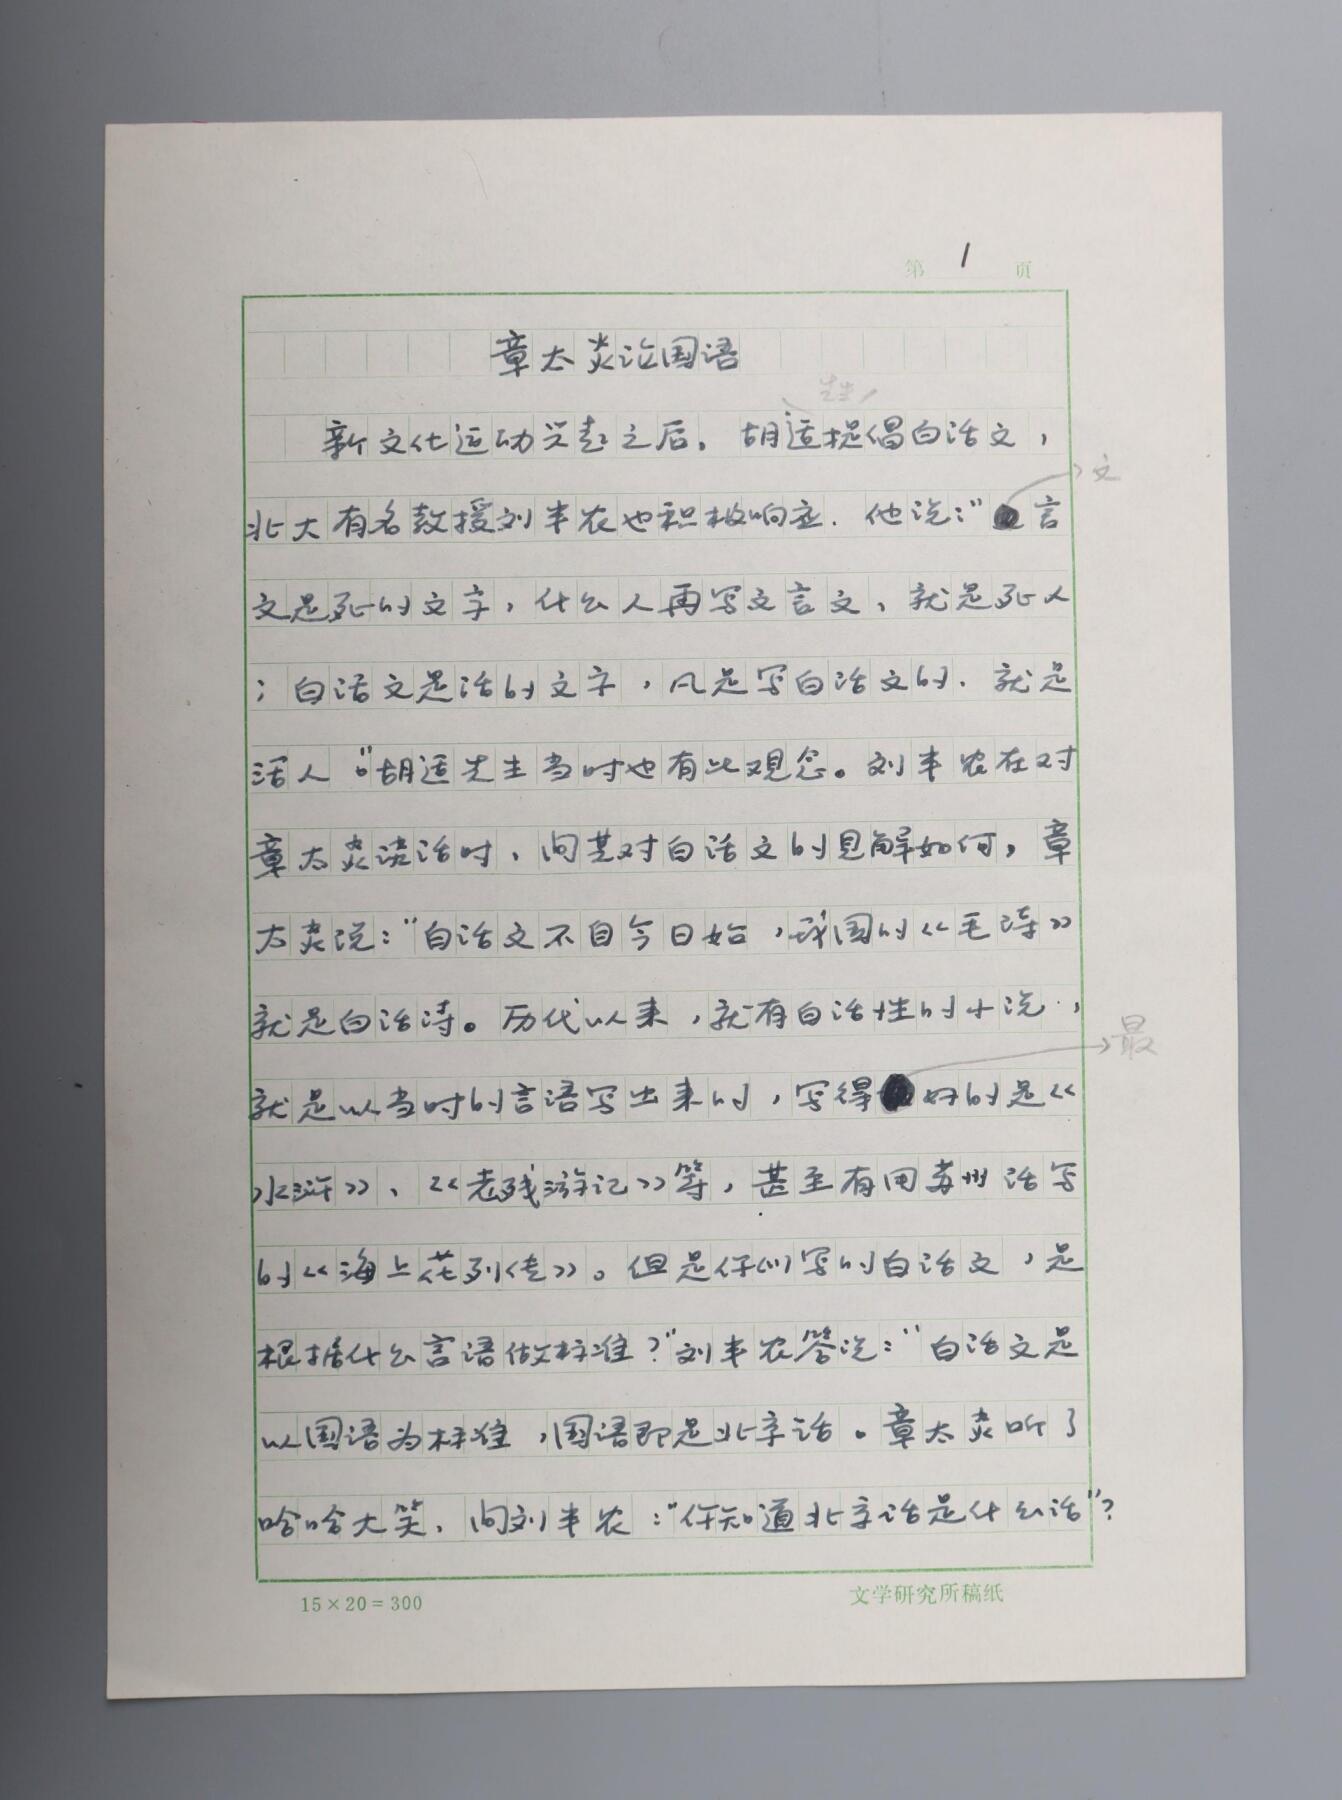 第 1 页
章太炎论国语
先生
新文化运动兴起之后，胡适提倡白话文，
文
北大有名教授刘半农也积极响应．他说：“言
文是死的文字，什么人再写文言文，就是死人
；白话文是活的文字，凡是写白话文的．就是
活人。”胡适先生当时也有此观念。刘半农在对
章太炎谈话时，问其对白话文的见解如何，章
太炎说：“白话文不自今日始，我国的《毛诗》
就是白话诗。历代以来，就有白话性的小说，
最
就是以当时的言语写出来的，写得好的是《
水浒》、《老残游记》等，甚至有用苏州话写
的《海上花列传》。但是你们写的白话文，是
根据什么言语做标准？”刘半农答说：“白话文是
以国语为标准，国语即是北京话。章太炎听了
哈哈大笑，问刘半农：“你知道北京话是什么话”？
15×20=300
文学研究所稿纸